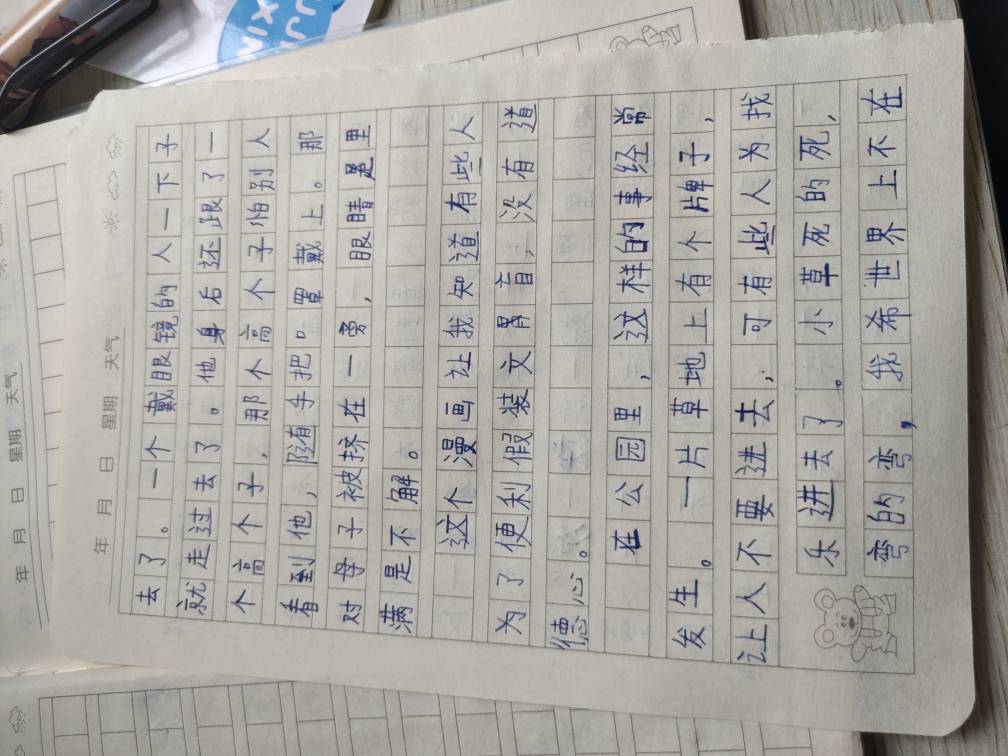 年 月 日 星期 天气
去了。一个戴眼镜的人一下子
就走过去了。他身后还跟了一
个高个子，那个高个子怕别人
看到他，随手把口罩戴上。那
对母子被挤在一旁，眼睛里
满是不解。
这个漫画让我知道有些人
为了便利假装文盲，没有道
德心。
在公园里，这样的事经常
发生。一片草地上有个牌子，
让人不要进去，可有些人为找
乐进去了。小草死的死，
弯的弯，我希世界上不在
年 月 日 星期 天气